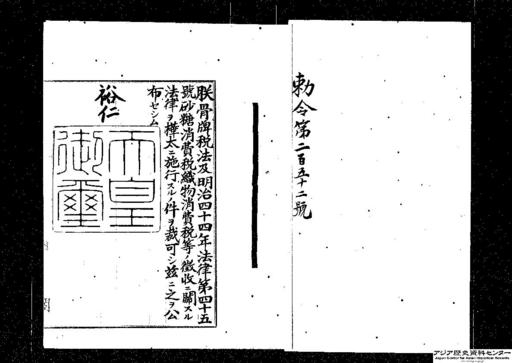 勅令第二百五十二號
朕骨牌税法及明治四十四年法律第四十五
號砂糖消費税織物消費税等ノ徴收ニ關スル
法律ヲ樺太ニ施行スルノ件ヲ裁可シ茲ニ之ヲ公
布セシム
裕仁
天皇
御璽
アジア歴史資料センター
Japan Center for Asian Historical Records